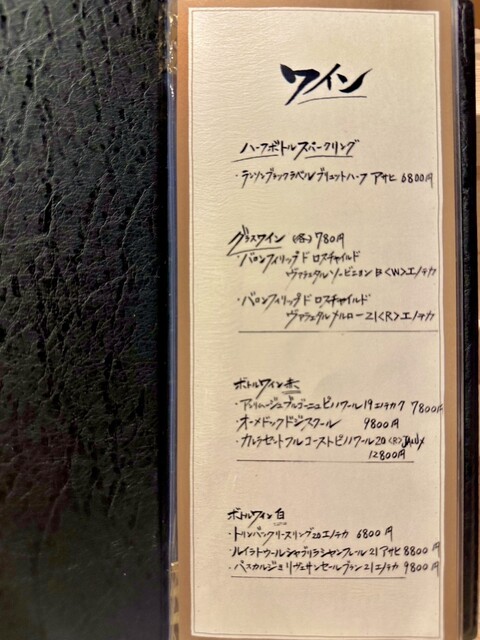 ワイン
ハーフボトルスパークリング
・ランソンブラックラベルブリュットハーフ アサヒ 6800円
グラスワイン (各)780円
・バロンフィリップ ド ロスチャイルド
ヴァラエタルソービニョン B<W>エノテカ
・バロンフィリップ ド ロスチャイルド
ヴァラエタルメルロー21<R>エノテカ
ボトルワイン 赤
ブルゴーニュピノノワール19エノテカ 7800円
・オーメドックドジスクール 9800円
・カルラセットフルコーストピノノワール20<R>
12800円
ボトルワイン 白
・トリンバックリースリング20エノテカ 6800円
・ルイラトゥールシャブリラシャンフルール21アサヒ8800円
・パスカルジョリヴェサンセールブラン21エノテカ 9800円